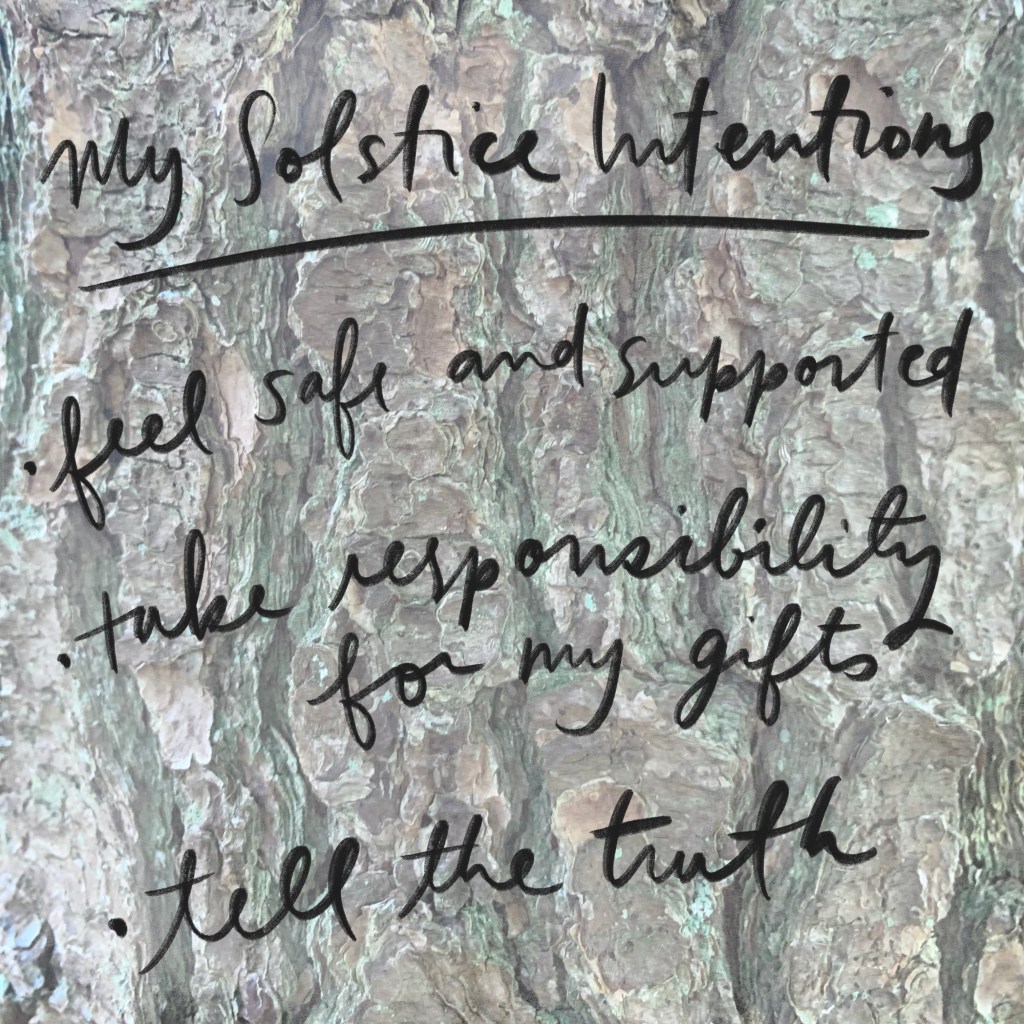 My Solstice Intentions
• feel safe and supported
• take responsibility
for my gifts
• tell the truth